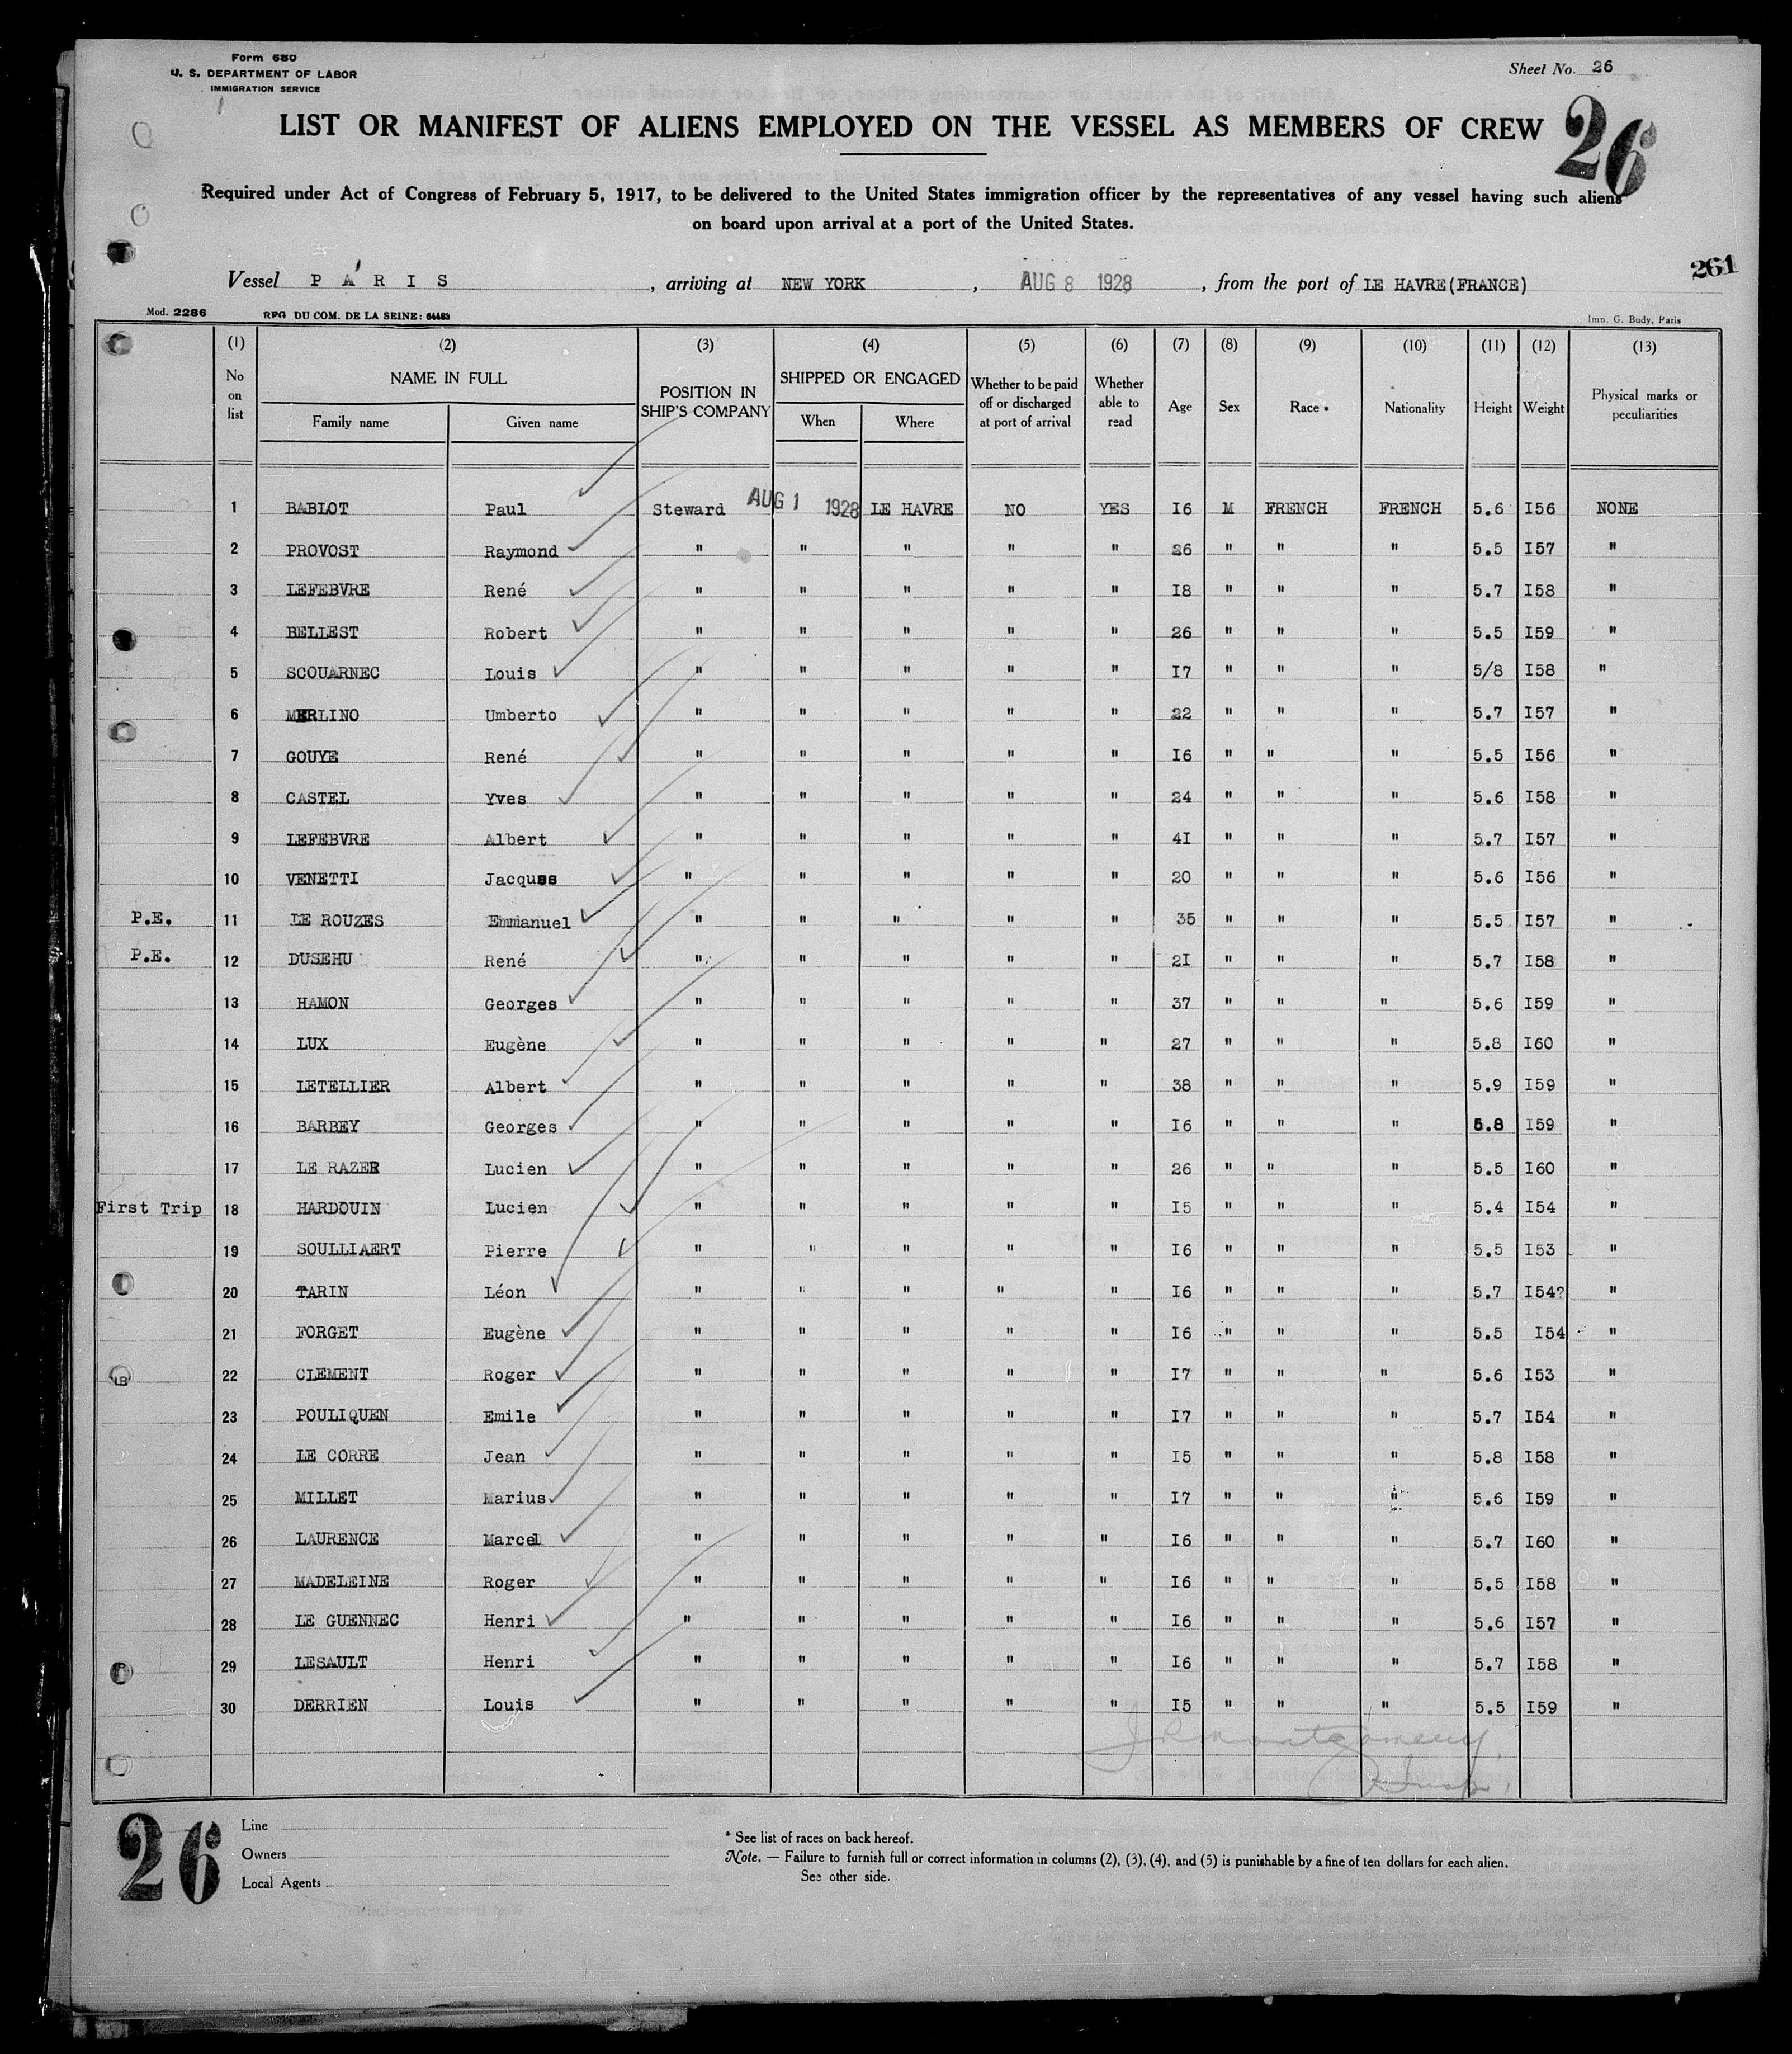 Form 680
U. S. DEPARTMENT OF LABOR
IMMIGRATION SERVICE
Sheet No. 26
LIST OR MANIFEST OF ALIENS EMPLOYED ON THE VESSEL AS MEMBERS OF CREW
26
Required under Act of Congress of February 5, 1917, to be delivered to the United States immigration officer by the representatives of any vessel having such aliens
on board upon arrival at a port of the United States.
261
Vessel P A R I S , arriving at NEW YORK , AUG 8 1928 , from the port of LE HAVRE (FRANCE)
Mod. 2286 RPG DU COM. DE LA SEINE: 64483 Imp. G. Budy, Paris
(1) (2) (3) (4) (5) (6) (7) (8) (9) (10) (11) (12) (13)
No on list NAME IN FULL POSITION IN SHIP'S COMPANY SHIPPED OR ENGAGED Whether to be paid off or discharged at port of arrival Whether able to read Age Sex Race * Nationality Height Weight Physical marks or peculiarities
Family name Given name When Where
1 BABLOT Paul Steward AUG 1 1928 LE HAVRE NO YES I6 M FRENCH FRENCH 5.6 I56 NONE
2 PROVOST Raymond " " " " " 26 " " " 5.5 I57 "
3 LEFEBVRE René " " " " " I8 " " " 5.7 I58 "
4 BELLEST Robert " " " " " 26 " " " 5.5 I59 "
5 SCOUARNEC Louis " " " " " I7 " " " 5/8 I58 "
6 MERLINO Umberto " " " " " 22 " " " 5.7 I57 "
7 GOUYE René " " " " " I6 " " " 5.5 I56 "
8 CASTEL Yves " " " " " 24 " " " 5.6 I58 "
9 LEFEBVRE Albert " " " " " 4I " " " 5.7 I57 "
10 VENETTI Jacques " " " " " 20 " " " 5.6 I56 "
P.E. 11 LE ROUZES Emmanuel " " " " " 35 " " " 5.5 I57 "
P.E. 12 DUSEHU René " " " " " 2I " " " 5.7 I58 "
13 HAMON Georges " " " " " 37 " " " 5.6 I59 "
14 LUX Eugène " " " " " 27 " " " 5.8 I60 "
15 LETELLIER Albert " " " " " 38 " " " 5.9 I59 "
16 BARBEY Georges " " " " " I6 " " " 5.8 I59 "
17 LE RAZER Lucien " " " " " 26 " " " 5.5 I60 "
First Trip 18 HARDOUIN Lucien " " " " " I5 " " " 5.4 I54 "
19 SOULLIAERT Pierre " " " " " I6 " " " 5.5 I53 "
20 TARIN Léon " " " " " I6 " " " 5.7 I54? "
21 FORGET Eugène " " " " " I6 " " " 5.5 I54 "
22 CLEMENT Roger " " " " " I7 " " " 5.6 I53 "
23 POULIQUEN Emile " " " " " I7 " " " 5.7 I54 "
24 LE CORRE Jean " " " " " I5 " " " 5.8 I58 "
25 MILLET Marius " " " " " I7 " " " 5.6 I59 "
26 LAURENCE Marcel " " " " " I6 " " " 5.7 I60 "
27 MADELEINE Roger " " " " " I6 " " " 5.5 I58 "
28 LE GUENNEC Henri " " " " " I6 " " " 5.6 I57 "
29 LESAULT Henri " " " " " I6 " " " 5.7 I58 "
30 DERRIEN Louis " " " " " I5 " " " 5.5 I59 "
J R Montgomery,
26
Line
Owners
Local Agents
* See list of races on back hereof.
Note. — Failure to furnish full or correct information in columns (2), (3), (4), and (5) is punishable by a fine of ten dollars for each alien.
See other side.